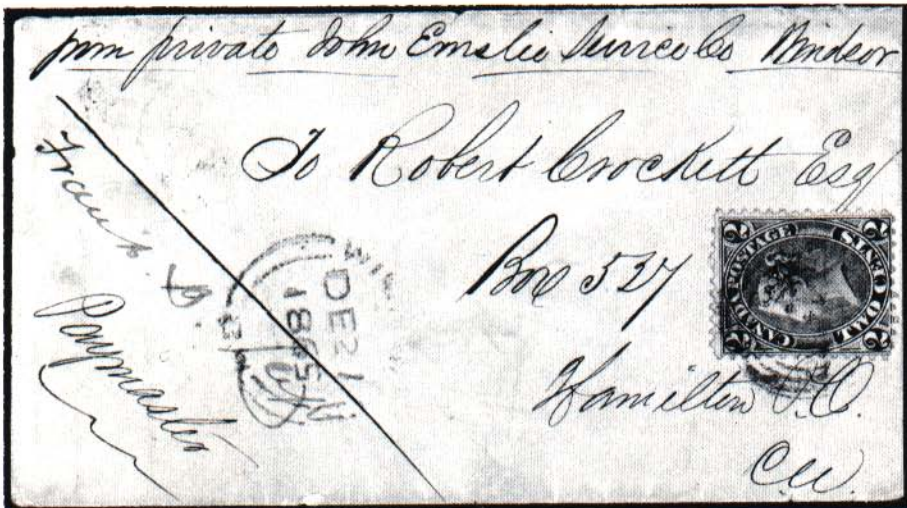 from private John Emslie Service Co Windsor
To Robert Crockett Esq
Box 527
Hamilton P.O.
C.W.
Paymaster
DE 21
1865
CANADA POSTAGE
TWO CENTS